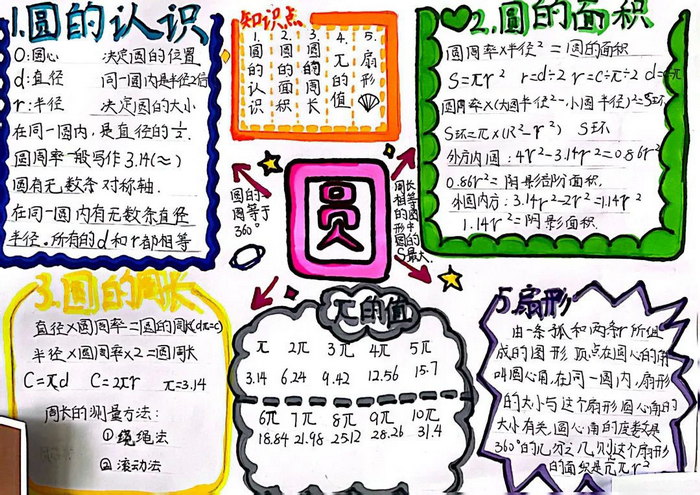 1.圆的认识
O:圆心 决定圆的位置
d:直径 同一圆内是半径2倍
r:半径 决定圆的大小
在同一圆内,是直径的½.
圆周率一般写作3.14(≈)
圆有无数条对称轴.
在同一圆内有无数条直径
半径。所有的d和r都相等
知识点
1.圆的认识
2.圆的面积
3.圆的周长
4.π的值
5.扇形
2.圆的面积
圆周率×半径²=圆的面积
S=πr² r=d÷2 r=C÷π÷2
圆周率×(大圆半径²-小圆半径²)=S环
S环=π×(R²-r²) S环
外方内圆:4r²-3.14r²=0.86r²
0.86r²=阴影部分面积.
外圆内方:3.14r²-2r²=1.14r²
1.14r²=阴影面积.
圆的
周等于
360°
圆
周长相等的图形中圆的S最大.
3.圆的周长
直径×圆周率=圆的周长(dπ=c)
半径×圆周率×2=圆周长
C=πd C=2πr π=3.14
周长的测量方法:
①绕绳法
②滚动法
π的值
π 2π 3π 4π 5π
3.14 6.24 9.42 12.56 15.7
6π 7π 8π 9π 10π
18.84 21.98 25.12 28.26 31.4
5.扇形
由一条弧和两条r所组
成的图形,顶点在圆心的角
叫圆心角,在同一圆内,扇形
的大小与这个扇形圆心角的
大小有关,圆心角的度数是
360°的几分之几,则这个扇形
的面积是几πr²